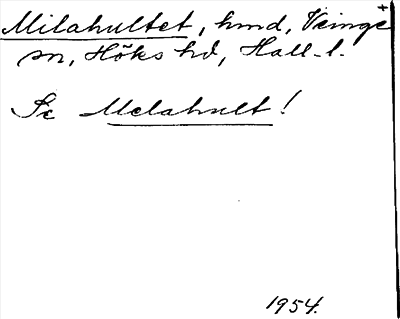 Milahultet, hmd, Veinge
sn, Höks hd, Hall. l.
Se Melahult!
1954.